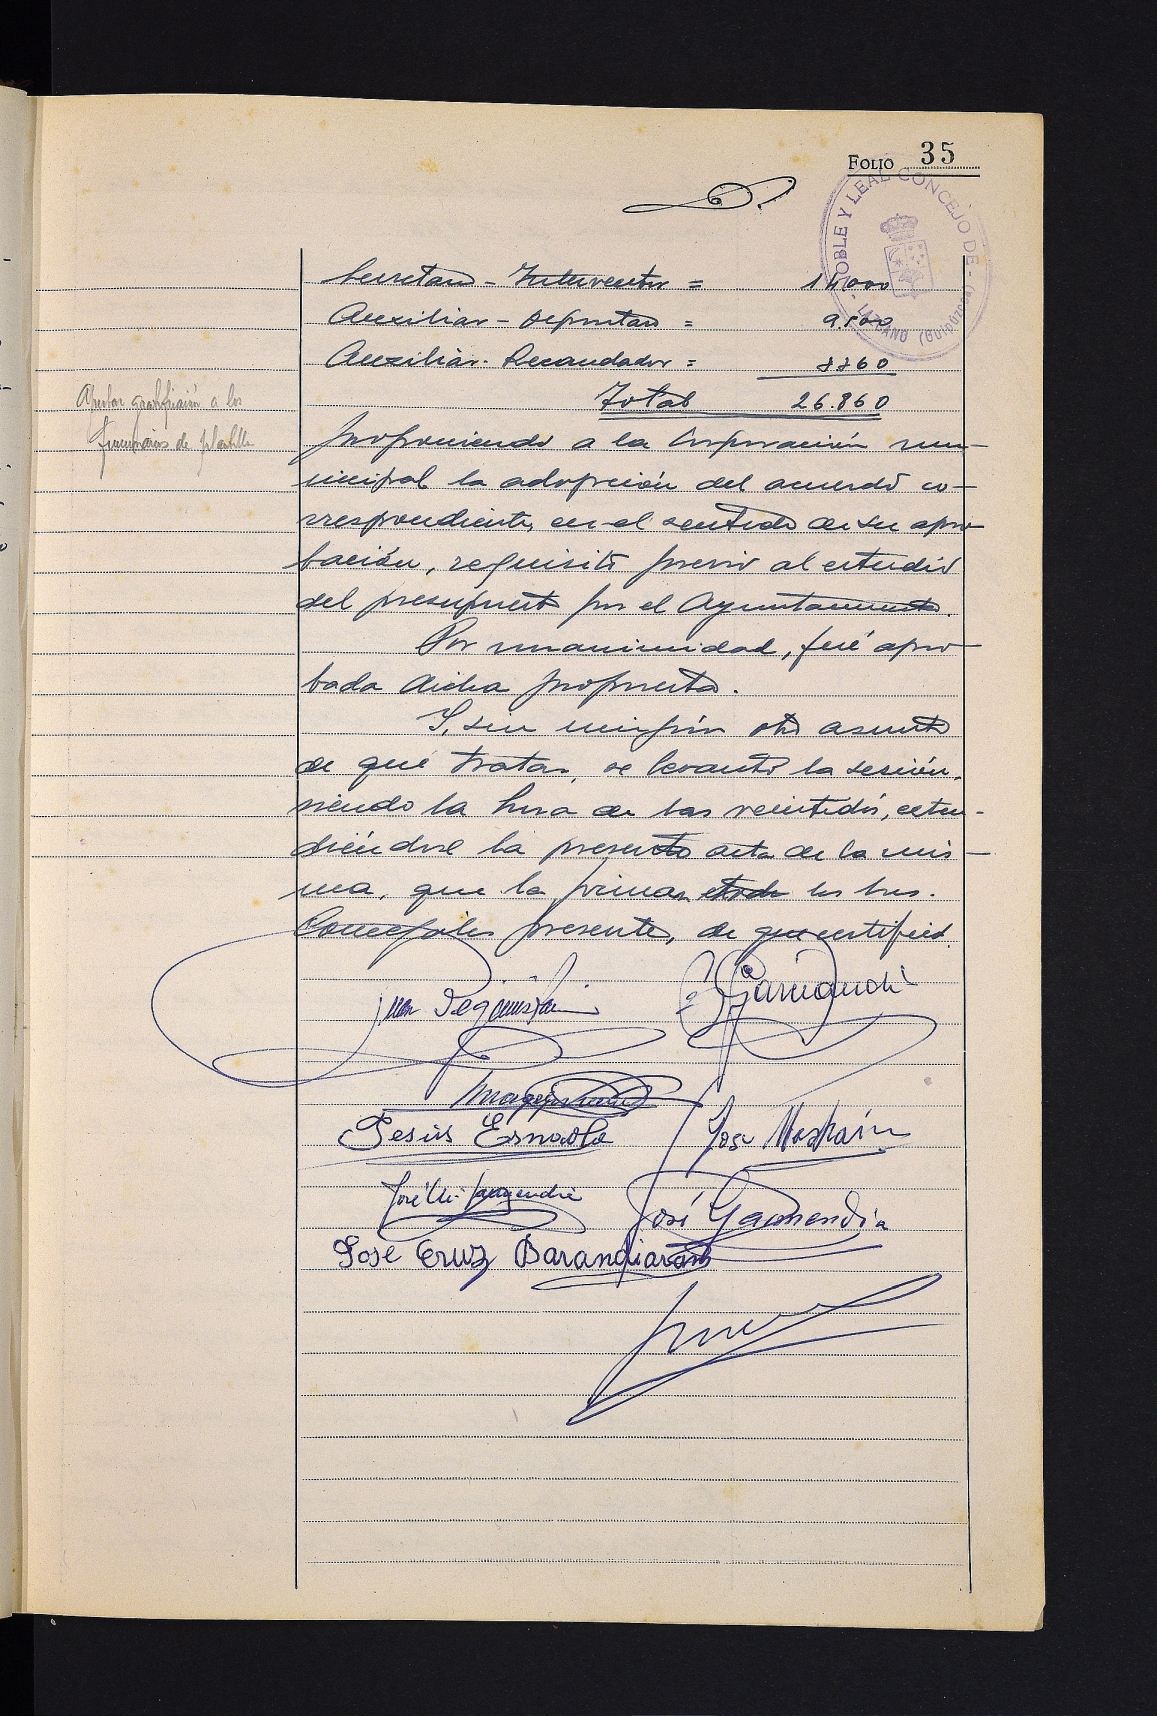 FOLIO 35
NOBLE Y LEAL CONCEJO DE - LAZCANO (Guipúzcoa)
Secretario - Interventor =
Auxiliar - Depositario =
Auxiliar - Recaudador =
Total 26.860
Aprobar gratificación a los
funcionarios de plantilla
proponiendo a la Corporación mu-
nicipal la adopción del acuerdo co-
rrespondiente, en el sentido de su apro-
bación, requisito previo al estudio
del presupuesto por el Ayuntamiento.
Por unanimidad, fué apro-
bada dicha propuesta.
Y, sin ningún otro asunto
de que tratar, se levantó la sesión,
siendo la hora de las veintidós, exten-
diéndose la presente acta de la mis-
ma, que la firman todos los Sres.
Concejales presentes, de que certifico.
Juan
Garmendia
Jesús Esnaola
José
José
José Garmendia
José Cruz Barandiarán